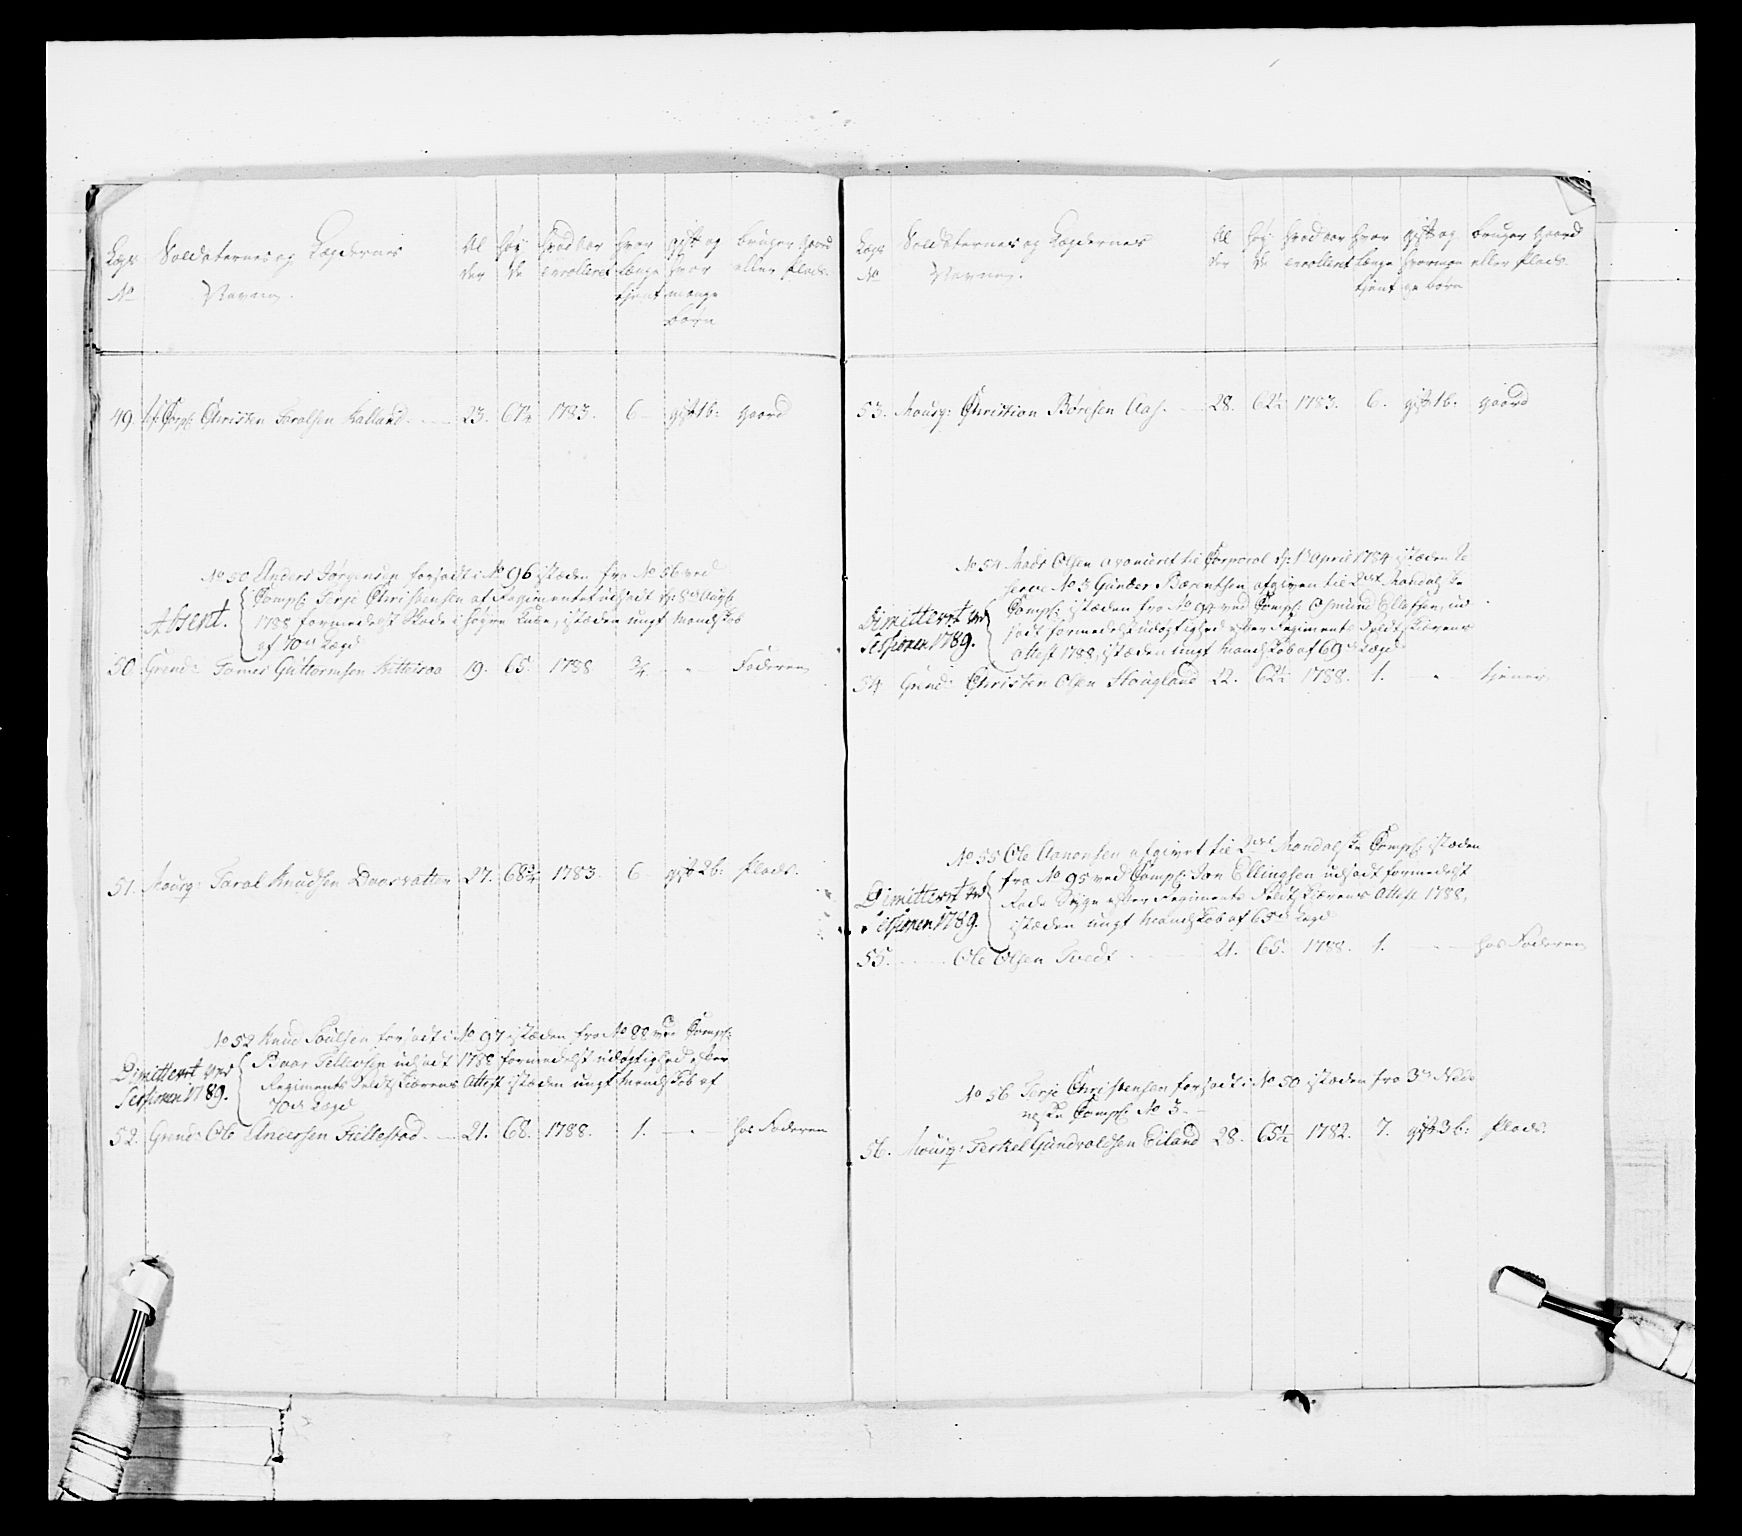 Lægs
No
Soldaternes og Lægdernes
Navne.
Al
der
høy
de
hvad aar
enrolleret
hvor
længe
tjent
gift og
hvor
mange
børn
bruger gaard
eller plads.
49. Corp: Christen Taralsen Kalland. 23. 67¼ 1783. 6 gift 1b: gaard
No 50 Anders Jørgensen forsadt i No 96 istæden fra No 56 ved
Comp: Terje Christensen at Regimentet udsadt
1788 formedelst Skade i høyre Knæe, istæden ungt Mandskob
af 70de Lægd
Absent.
50. Grend: Tomes Guttormsen 19. 65. 1788 ¾ " Faderen
51. Mousq: Taral Knudsen Daasvatten 27. 68¾ 1783. 6 gift 2b: plads.
No 52 Knud Poulsen forsadt i No 97 istæden fra No 88 ved Comp:
Boar Tellevsen udsadt 1788 formedelst udygtighed efter
Regiments Feldtskiærens Attest istæden ungt Mandskob af
70de Lægd
Dimitteret ved
Sessionen 1789.
52. Grend: Ole Andersen Fiellestad. 21. 68. 1788. 1. " hos Faderen
Lægs
No
Soldaternes og Lægdernes
Navne.
Al
der
høy
de
hvad aar
enrolleret
hvor
længe
tjent
gift og
hvorman
ge børn
bruger gaard
eller plads.
53. Mousq: Christian Børesen Aas. 28. 62½ 1783. 6. gift 1b. gaard
No 54 Mads Olsen avanceret til Corporal d: 1ste April 1784 istæden
No 5 Gunder Bærentsen afgiven til 2det Mandalske
Comp: istæden fra No 94 ved Comp: Osmund Ellefsen, ud
sadt formedelst udygtighed efter Regiments Feldtskiærens
Attest 1788, istæden ungt Mandskob af 69de Lægd
Dimitteret ved
Sessionen 1789.
54. Grend: Christen Olsen Hougland 22. 62½ 1788. 1. " tiener
No 55 Ole Aanonsen afgivet til 2det Mandalske Comp: istæden
fra No 95 ved Comp: Jon Ellingsen udsadt formedelst
Syge efter Regiments Feldtskiærens Attest 1788,
istæden ungt Mandskob af 65de Lægd
Dimitteret ved
Sessionen 1789.
55. Ole Olsen Tvedt 21. 65. 1788. 1. " hos Faderen
No 56 Terje Christensen forsadt i No 50 istæden fra 3de Nede
næske Comp: No 3.
56. Mousq: Terkel Gundvaldsen Eiland 28. 65½ 1782. 7. gift 3b: plads.